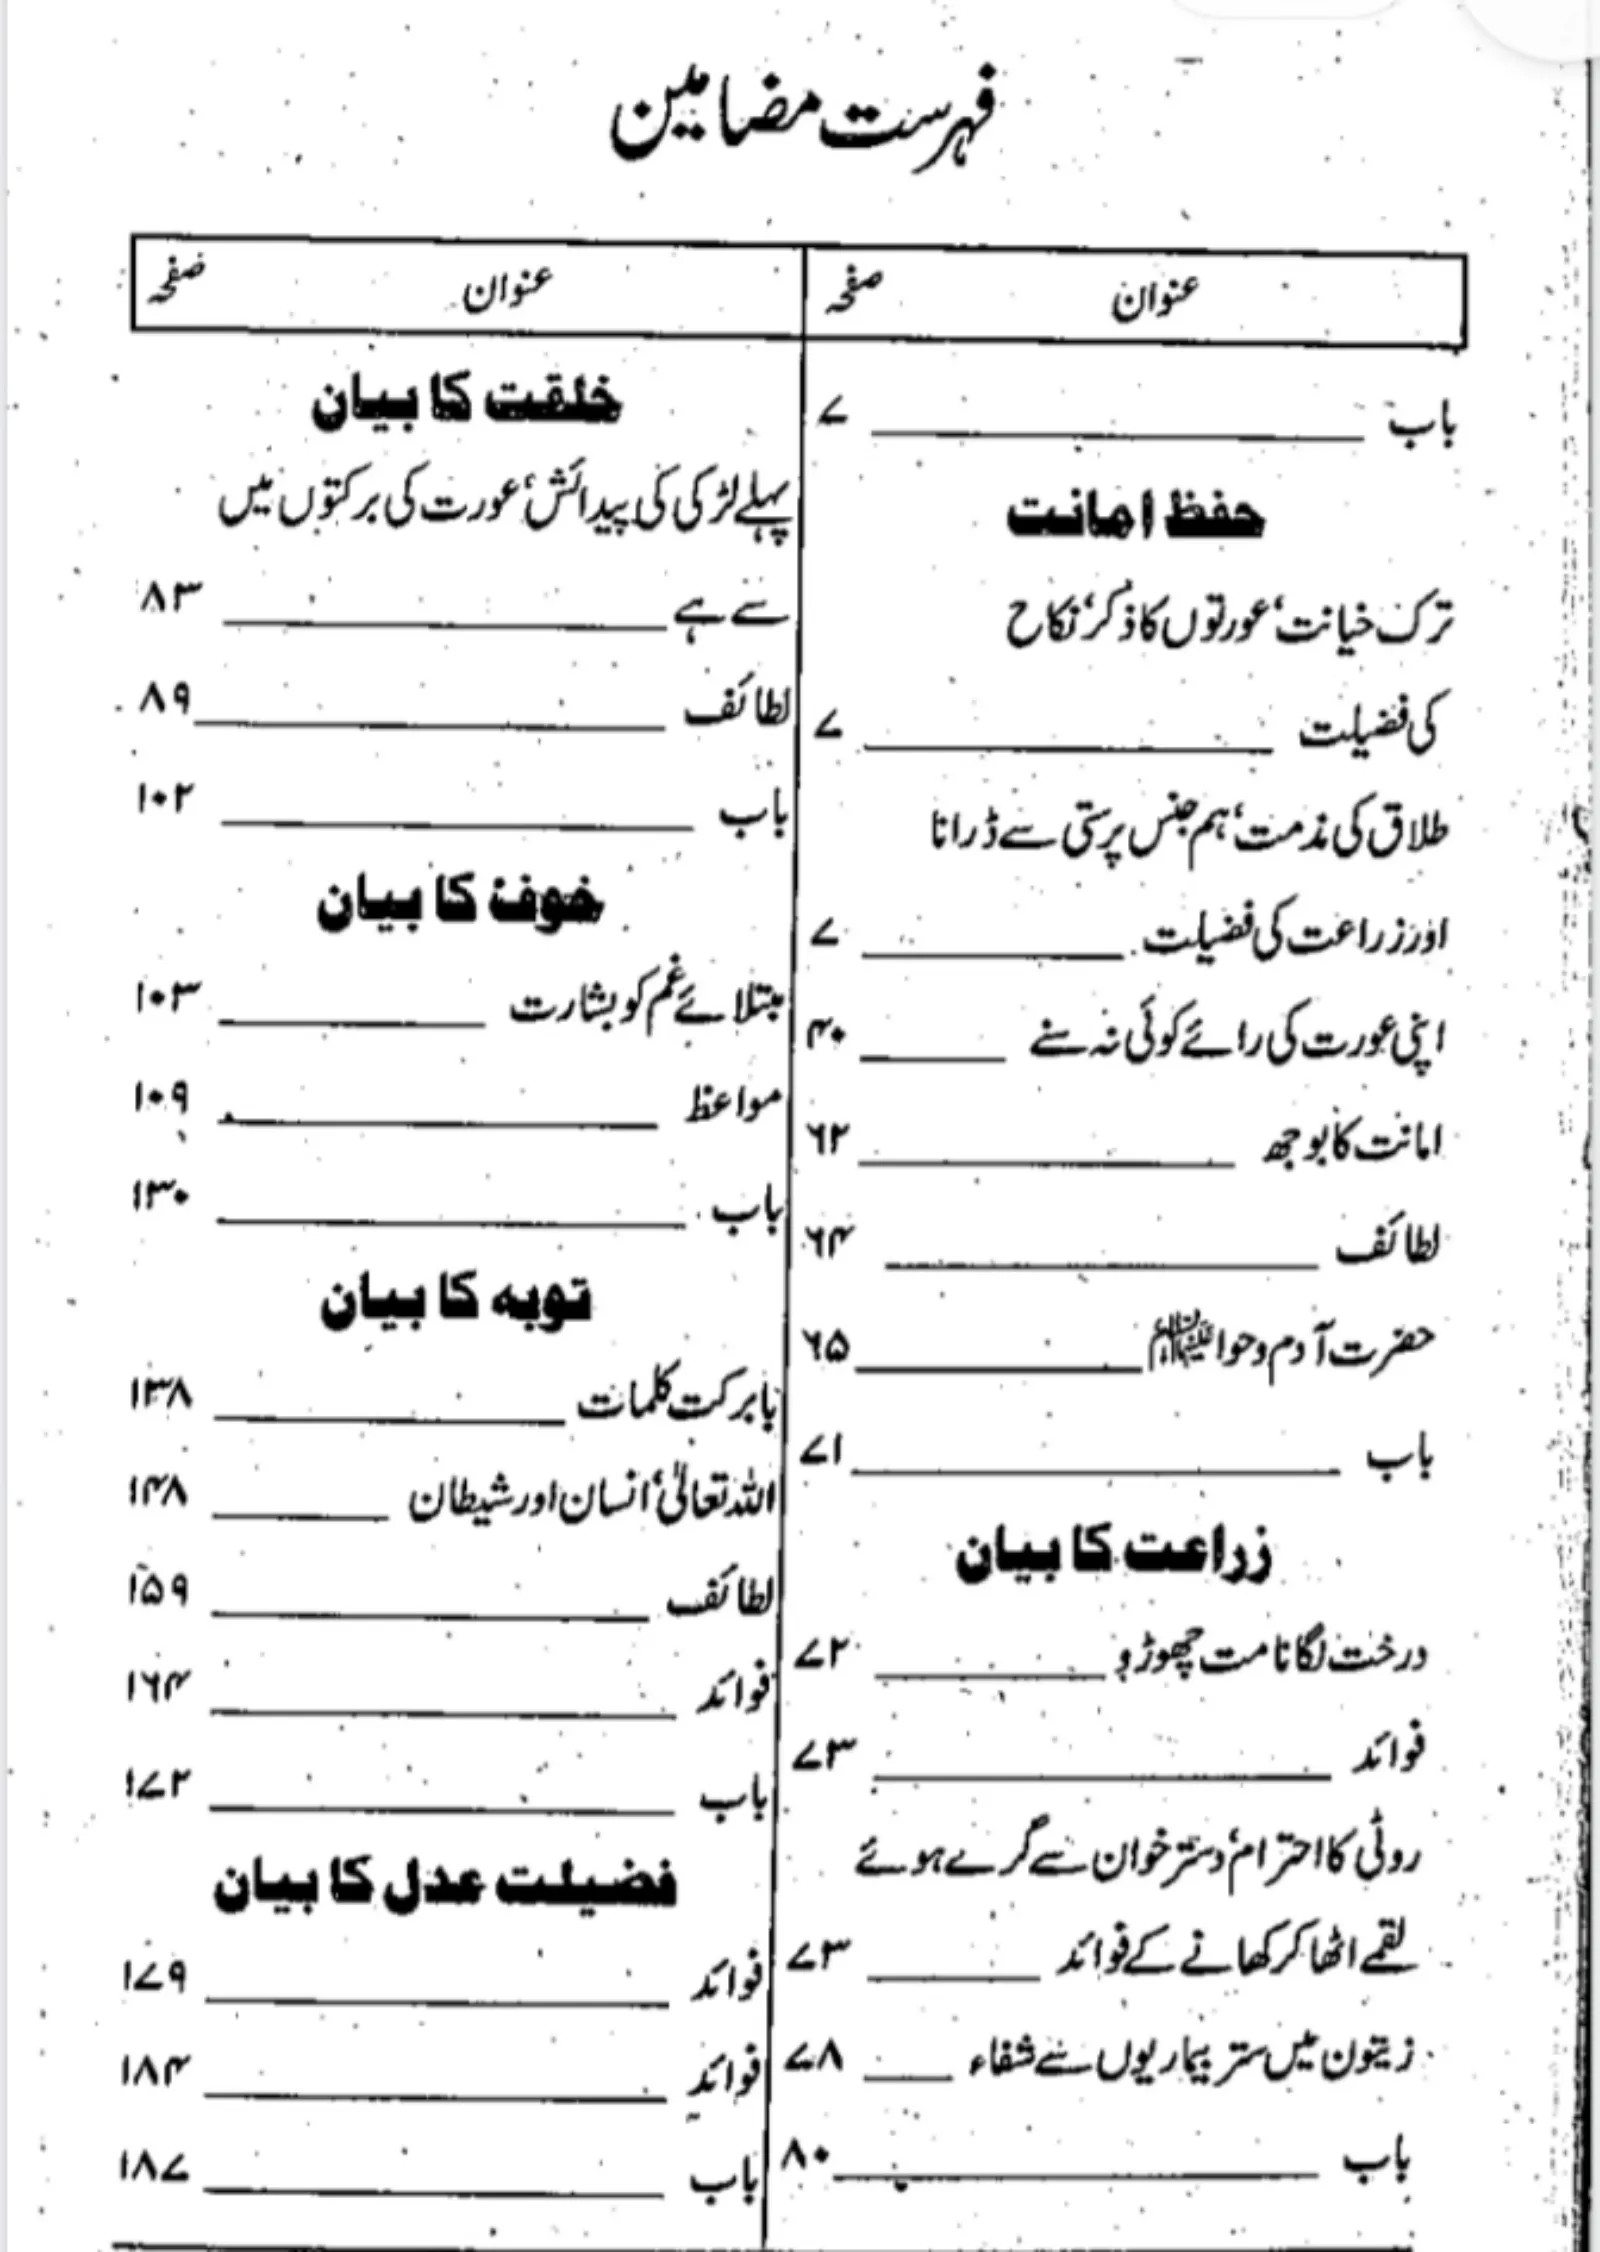 فہرست مضامین
عنوان صفحہ
باب ۷
حفظ امانت
ترک خیانت، عورتوں کا ذکر، نکاح
کی فضیلت ۷
طلاق کی مذمت، ہم جنس پرستی سے ڈرانا
اور زراعت کی فضیلت ۷
اپنی عورت کی رائے کوئی نہ سنے ۴۰
امانت کا بوجھ ۶۲
لطائف ۶۴
حضرت آدم و حوا علیہما السلام ۶۵
باب ۷۱
زراعت کا بیان
درخت لگانا مت چھوڑو ۷۲
فوائد ۷۳
روٹی کا احترام، دستر خوان سے گرے ہوئے
لقمے اٹھا کر کھانے کے فوائد ۷۳
زیتون میں ستر بیماریوں سے شفاء ۷۸
باب ۸۰
عنوان صفحہ
خلقت کا بیان
پہلے لڑکی کی پیدائش، عورت کی برکتوں میں
سے ہے ۸۳
لطائف ۸۹
باب ۱۰۲
خوف کا بیان
مبتلائے غم کو بشارت ۱۰۳
مواعظ ۱۰۹
باب ۱۳۰
توبہ کا بیان
بابرکت کلمات ۱۳۸
اللہ تعالیٰ، انسان اور شیطان ۱۴۸
لطائف ۱۵۹
فوائد ۱۶۴
باب ۱۷۲
فضیلت عدل کا بیان
فوائد ۱۷۹
فوائد ۱۸۴
باب ۱۸۷